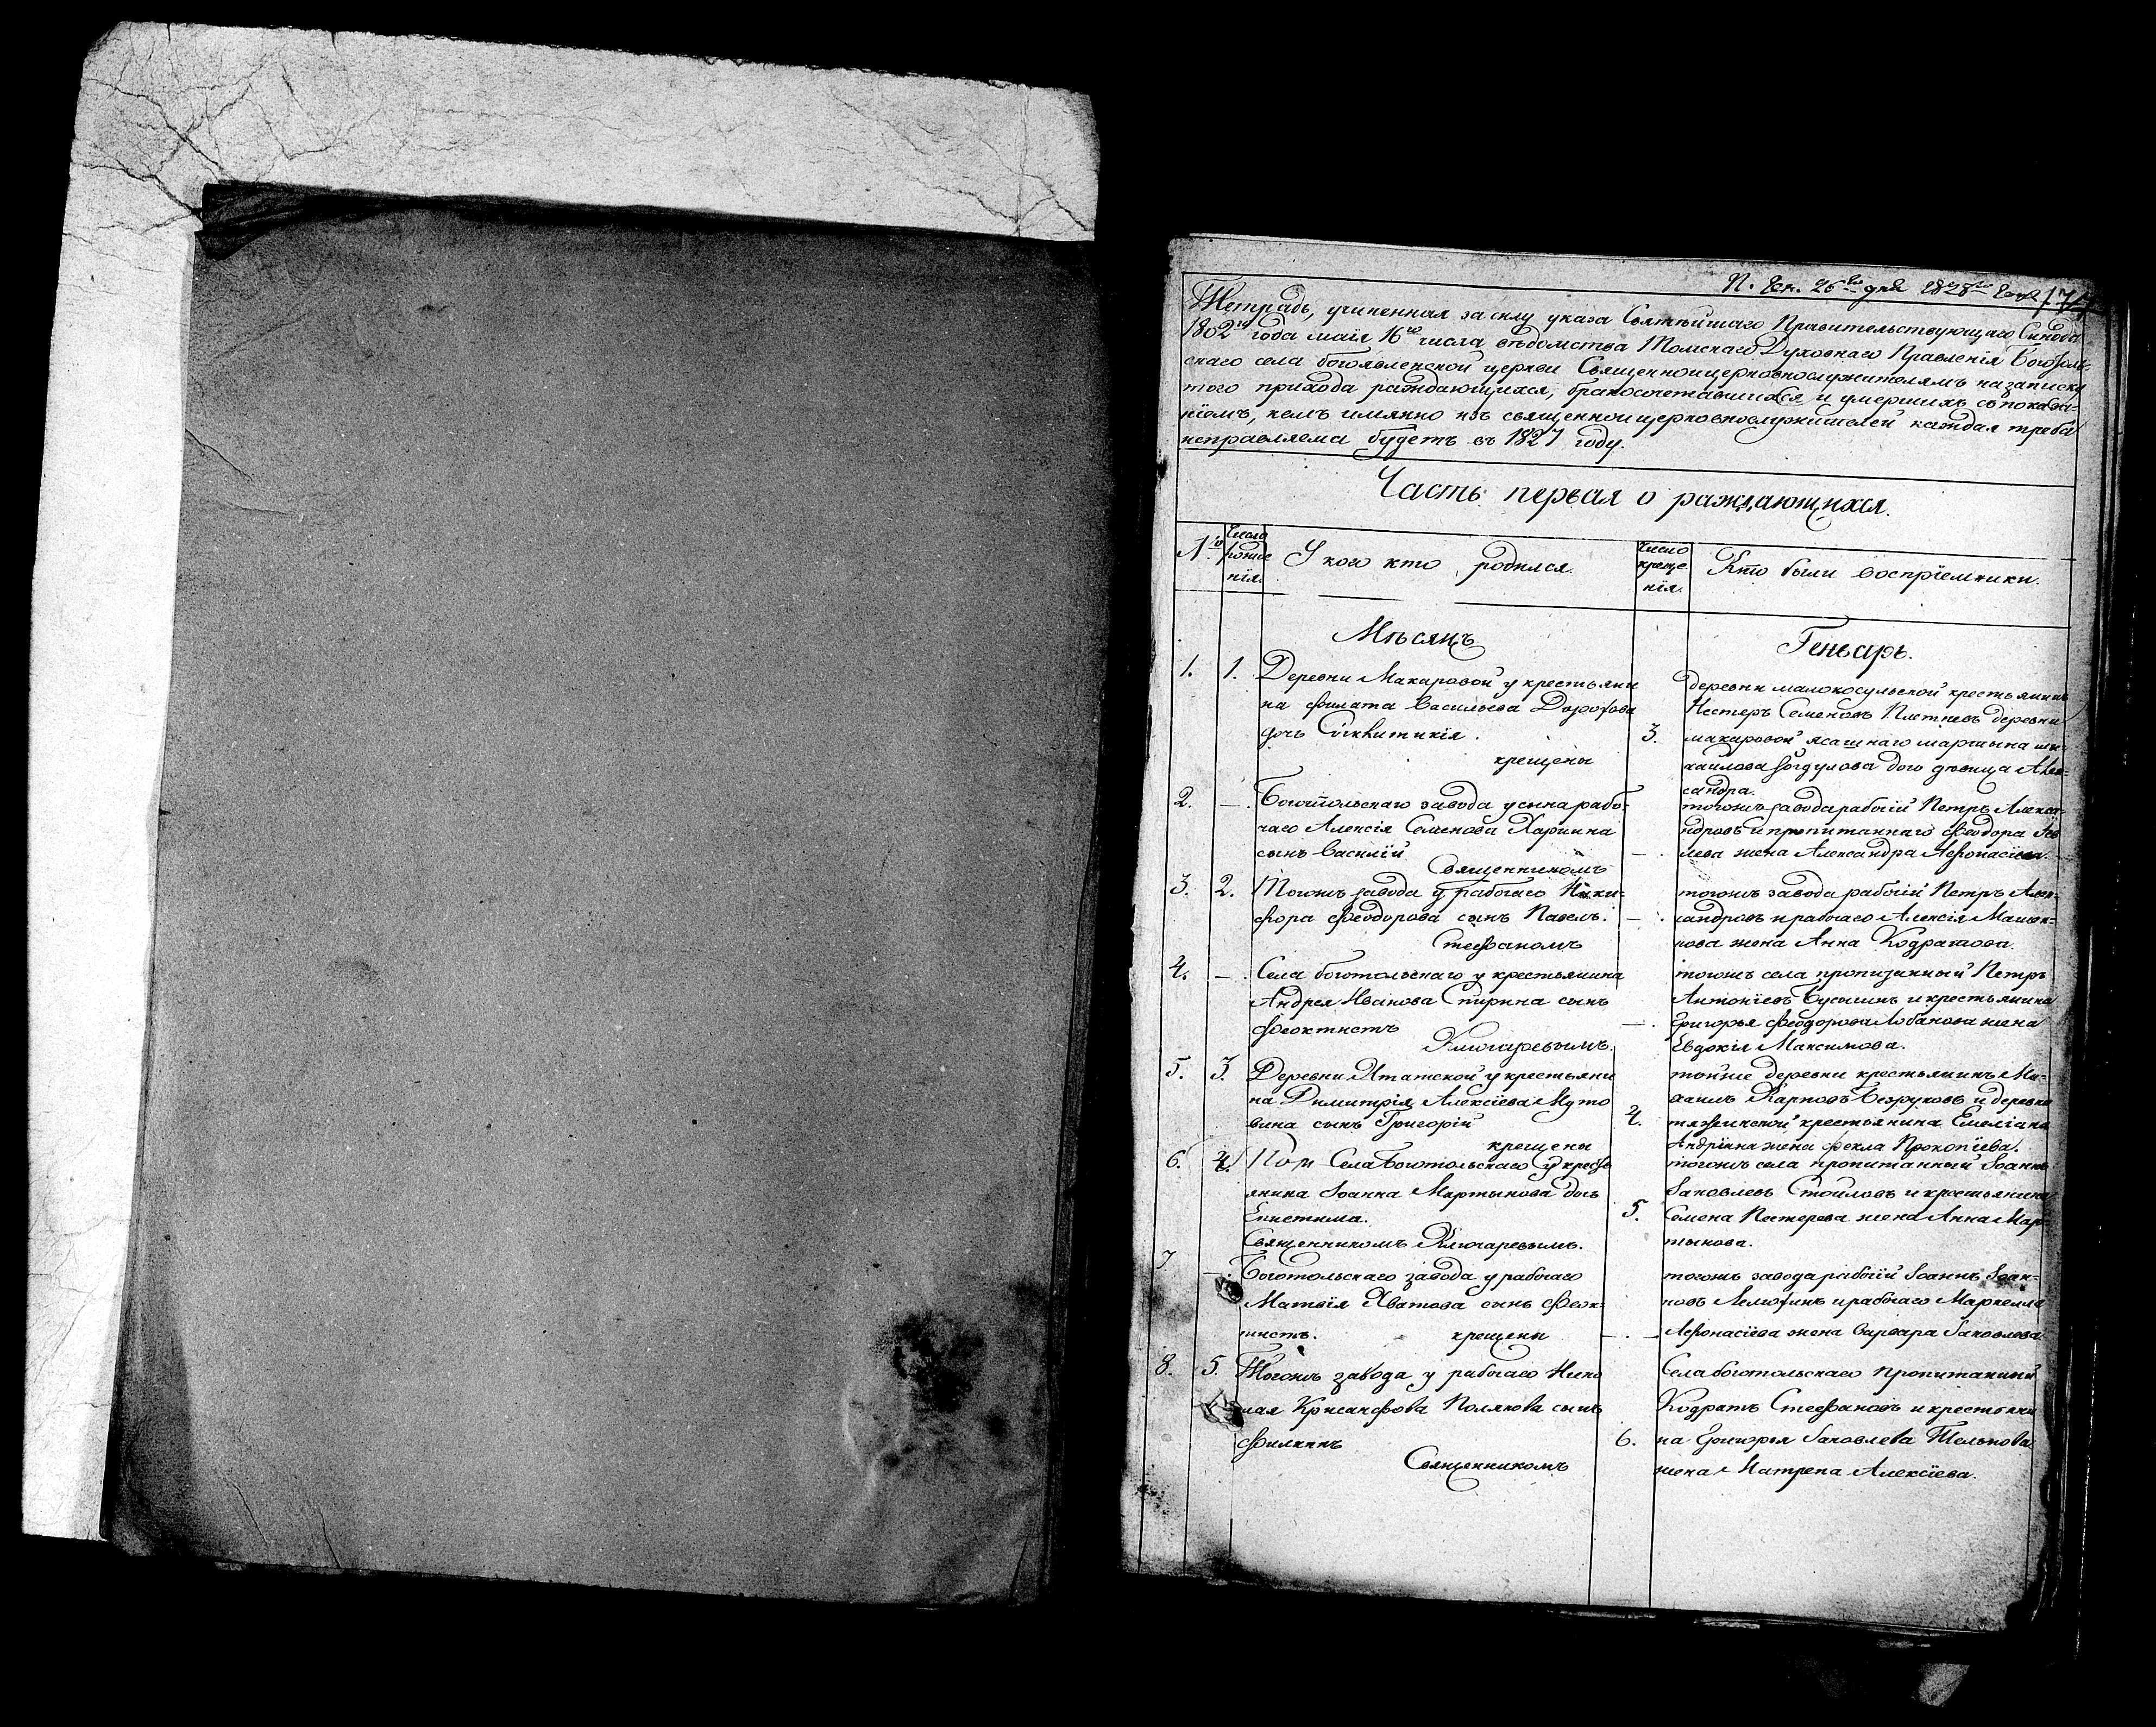 П. Ген. 26го дня 1828го года
Тетрадь, учиненная за силу указа Святѣйшаго Правительствующаго Синода
1802го года маія 16го числа вѣдомства Томскаго Духовнаго Правленія Боготоль-
скаго села богоявленской церкви Священноицерковнослужителямъ на записку
того прихода раждающихся, бракосочетавшихся и умершихъ съ показа-
ніемъ, кемъ имянно изъ священноицерковнослужителей каждая треба
исправляема будетъ въ 1827 году.
Часть первая о раждающихся.
№ Число рожде нія. У кого кто родился. Число креще нія. Кто были воспріемники.
Мѣсяцъ Геньварь.
1. 1. Деревни Макаровой у крестьяни
на Филата Васильева Дорофова
дочь
крещены
3.
деревни малокосульской крестьянинъ
Нестеръ Семеновъ Плетневъ деревни
макаровой ясашнаго мартына ми-
хаилова дочь девица Алек-
сандра.
2. —. Боготольскаго завода у сына рабо-
чаго Алексія Семенова Харина
сынъ Василій
Священникомъ
—.
тогожъ завода рабочій Петръ Алекса-
ндровъ и пропитаннаго Феодора
жена Александра Афонасіева.
3. 2. Тогожъ завода у рабочаго Ники-
фора Феодорова сынъ Павелъ.
Стефаномъ
—.
тогожъ завода рабочій Петръ Алек-
сандровъ и рабочаго Алексія
жена Анна Кодратова.
4. —. Села боготольскаго у крестьянина
Андрея Иванова Спирина сынъ
Феоктистъ
Ключаревымъ.
—.
тогожъ села пропитанный Петръ
Антоніевъ и крестьянина
Григорья Феодорова Лобанова жена
Евдокія Максимова.
5. 3. Деревни Итатской у крестьяни
на Димитрія Алексіева Муто
вина сынъ Григорій
крещены
4.
тойже деревни крестьянинъ Ми-
хаилъ Карповъ Безруковъ и деревни
тяжинской крестьянина Емеліана
Андріяна жена Фекла Прокопіева.
6. 4. Села Боготольскаго у кресть
янина Іоанна Мартынова дочь
Епистима.
Священникомъ Ключаревымъ.
5.
тогожъ села пропитанный Іоаннъ
Іаковлевъ Стоиловъ и крестьянина
Семена Нестерева жена Анна Мар-
тынова.
7. —. Боготольскаго завода у рабочаго
Матвія Хватова сынъ Феок-
тистъ. крещены
—.—
тогожъ завода рабочій Іоаннъ Іоан-
новъ и рабочаго Маркелла
Афонасіева жена Варвара Іаковлева.
8. 5. Тогожъ завода у рабочаго Нико
лая Крисанфова Полякова сынъ
Филиппъ
Священникомъ
6.
Села боготольскаго пропитанный
Кодратъ Стефановъ и крестьяни
на Григорья Іаковлева
жена Матрена Алексіева.